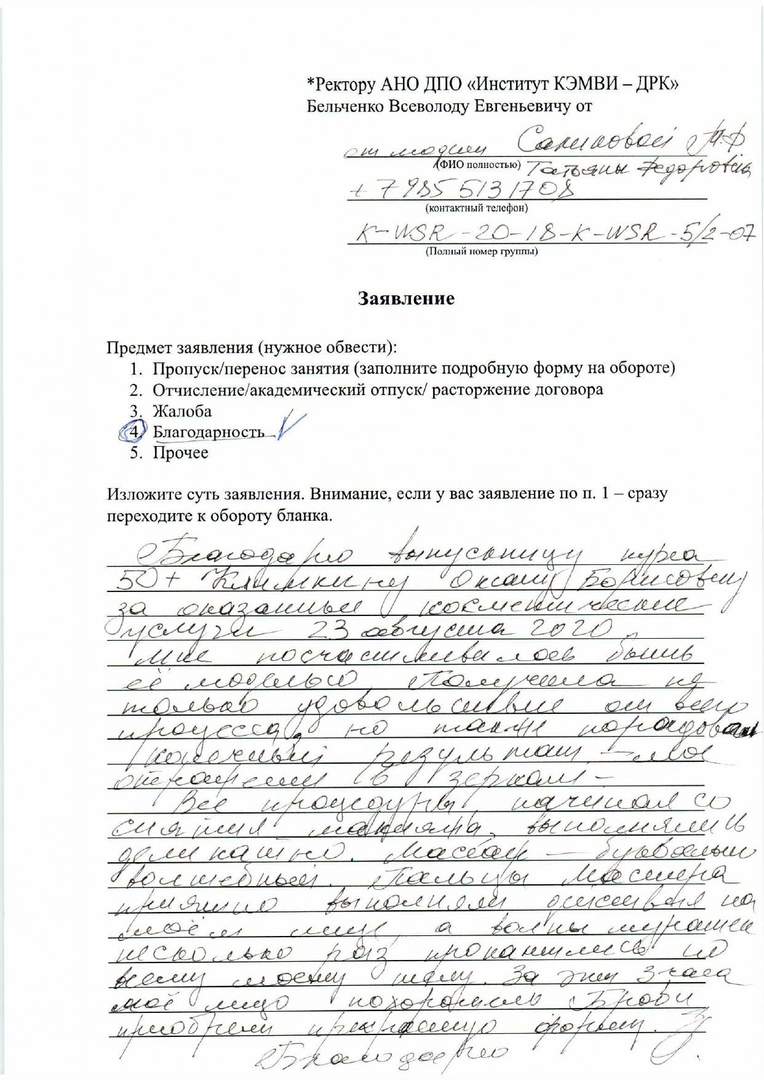 *Ректору АНО ДПО «Институт КЭМВИ – ДРК»
Бельченко Всеволоду Евгеньевичу от
от модели Салиховой Т.Ф
(ФИО полностью) Татьяны Федоровны
+ 7 985 513 1708
(контактный телефон)
K-WSR-20-18-K-WSR-5/2-07
(Полный номер группы)
Заявление
Предмет заявления (нужное обвести):
1. Пропуск/перенос занятия (заполните подробную форму на обороте)
2. Отчисление/академический отпуск/ расторжение договора
3. Жалоба
4. Благодарность
5. Прочее
Изложите суть заявления. Внимание, если у вас заявление по п. 1 – сразу
переходите к обороту бланка.
Благодарю выпускницу курса
50+ Климкину Оксану Борисовну
за оказанные косметические
услуги 23 августа 2020.
Мне посчастливилось быть
её моделью. Получила не
только удовольствие от всего
процесса, но также порадовал
конечный результат – моё
отражение в зеркале –
Все процедуры, начиная со
снятия макияжа, выполнялись
деликатно. Массаж – буквально
волшебный. Пальцы Мастера
приятно выполняли движения на
моём лице, а волны мурашек
несколько раз прокатились по
всему моему телу. За эти 3 часа
моё лицо похорошело. Брови
приобрели прекрасную форму.
Благодарю